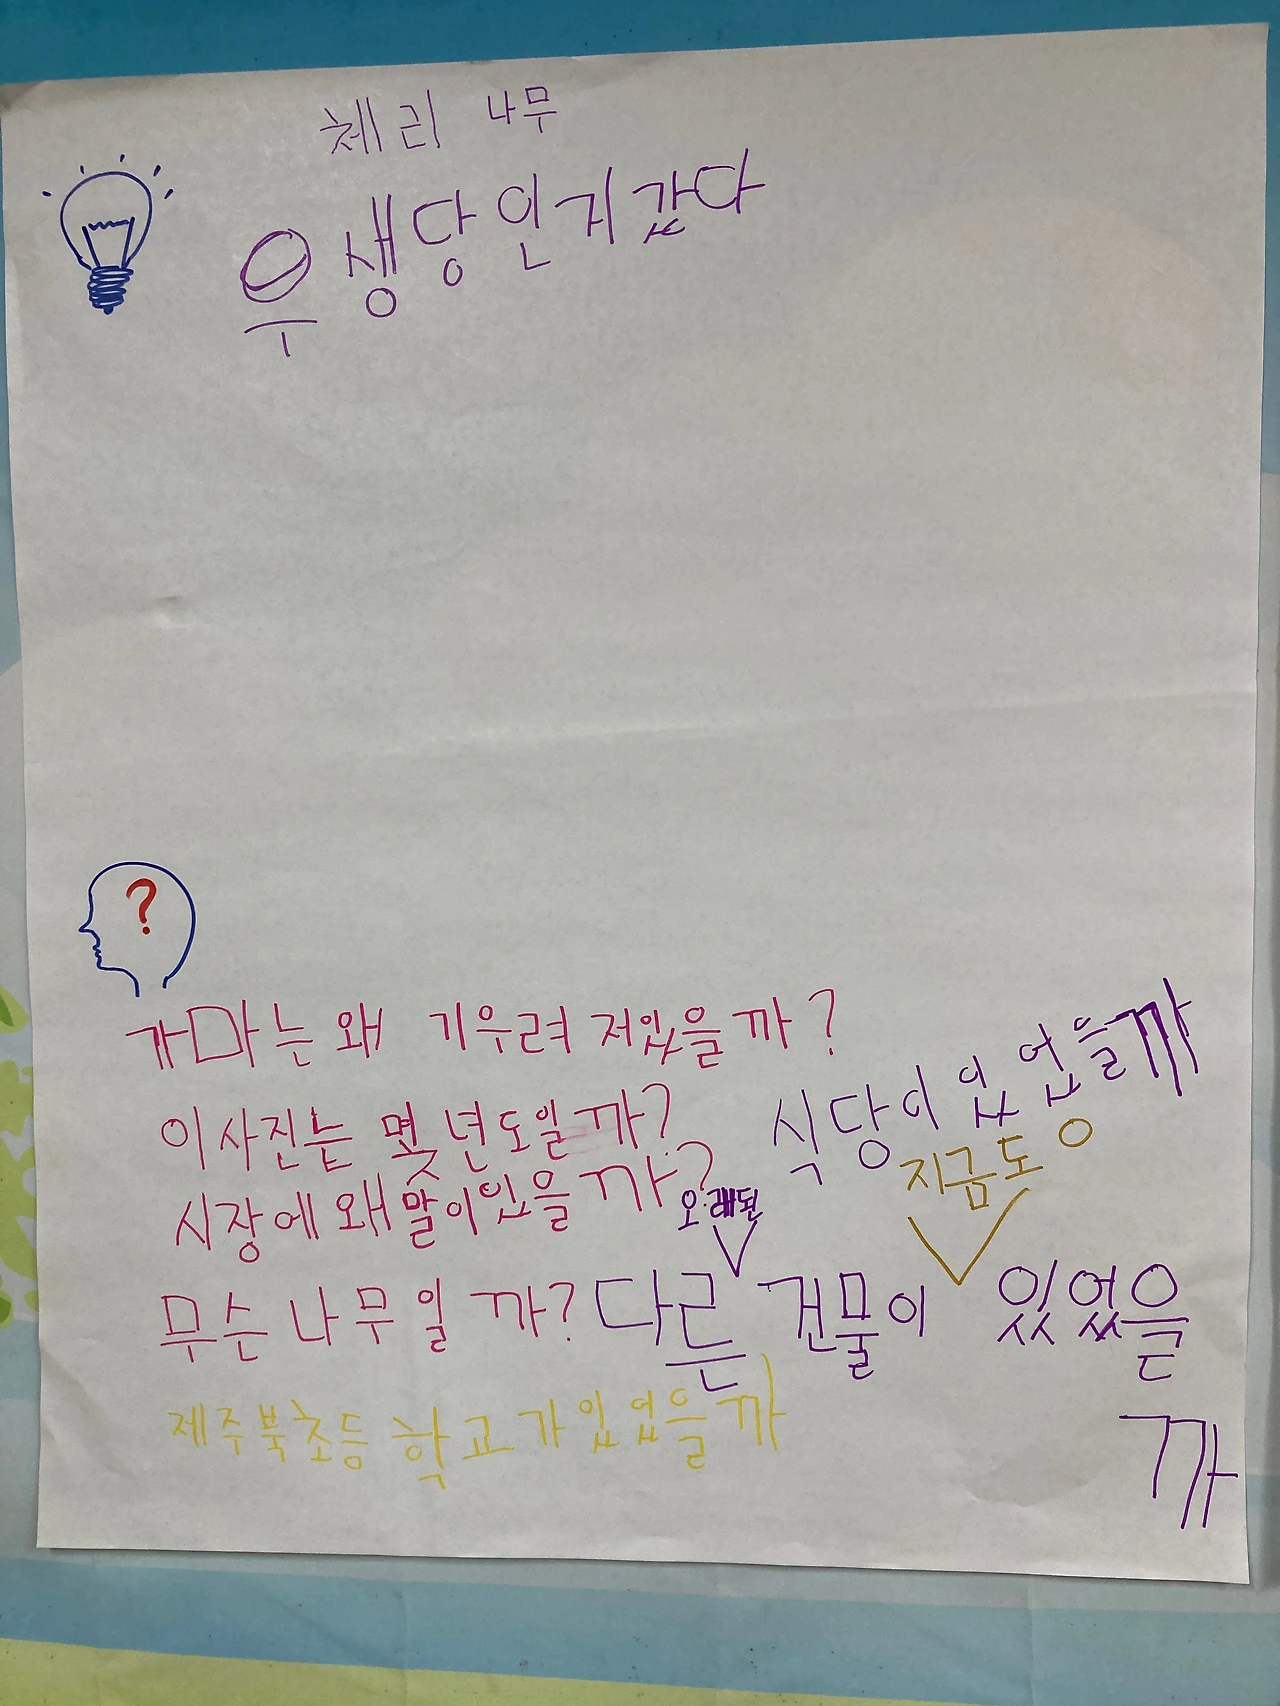 체리 나무
우생당인지갔다
?
가마는 왜 기우려 저있을까?
식당이 있었을까
이사진는 몇년도일까?
지금도
시장에 왜 말이있을까?
오래된
무슨나무일까?
다른 건물이 있었을까
제주북초등학교가있었을까